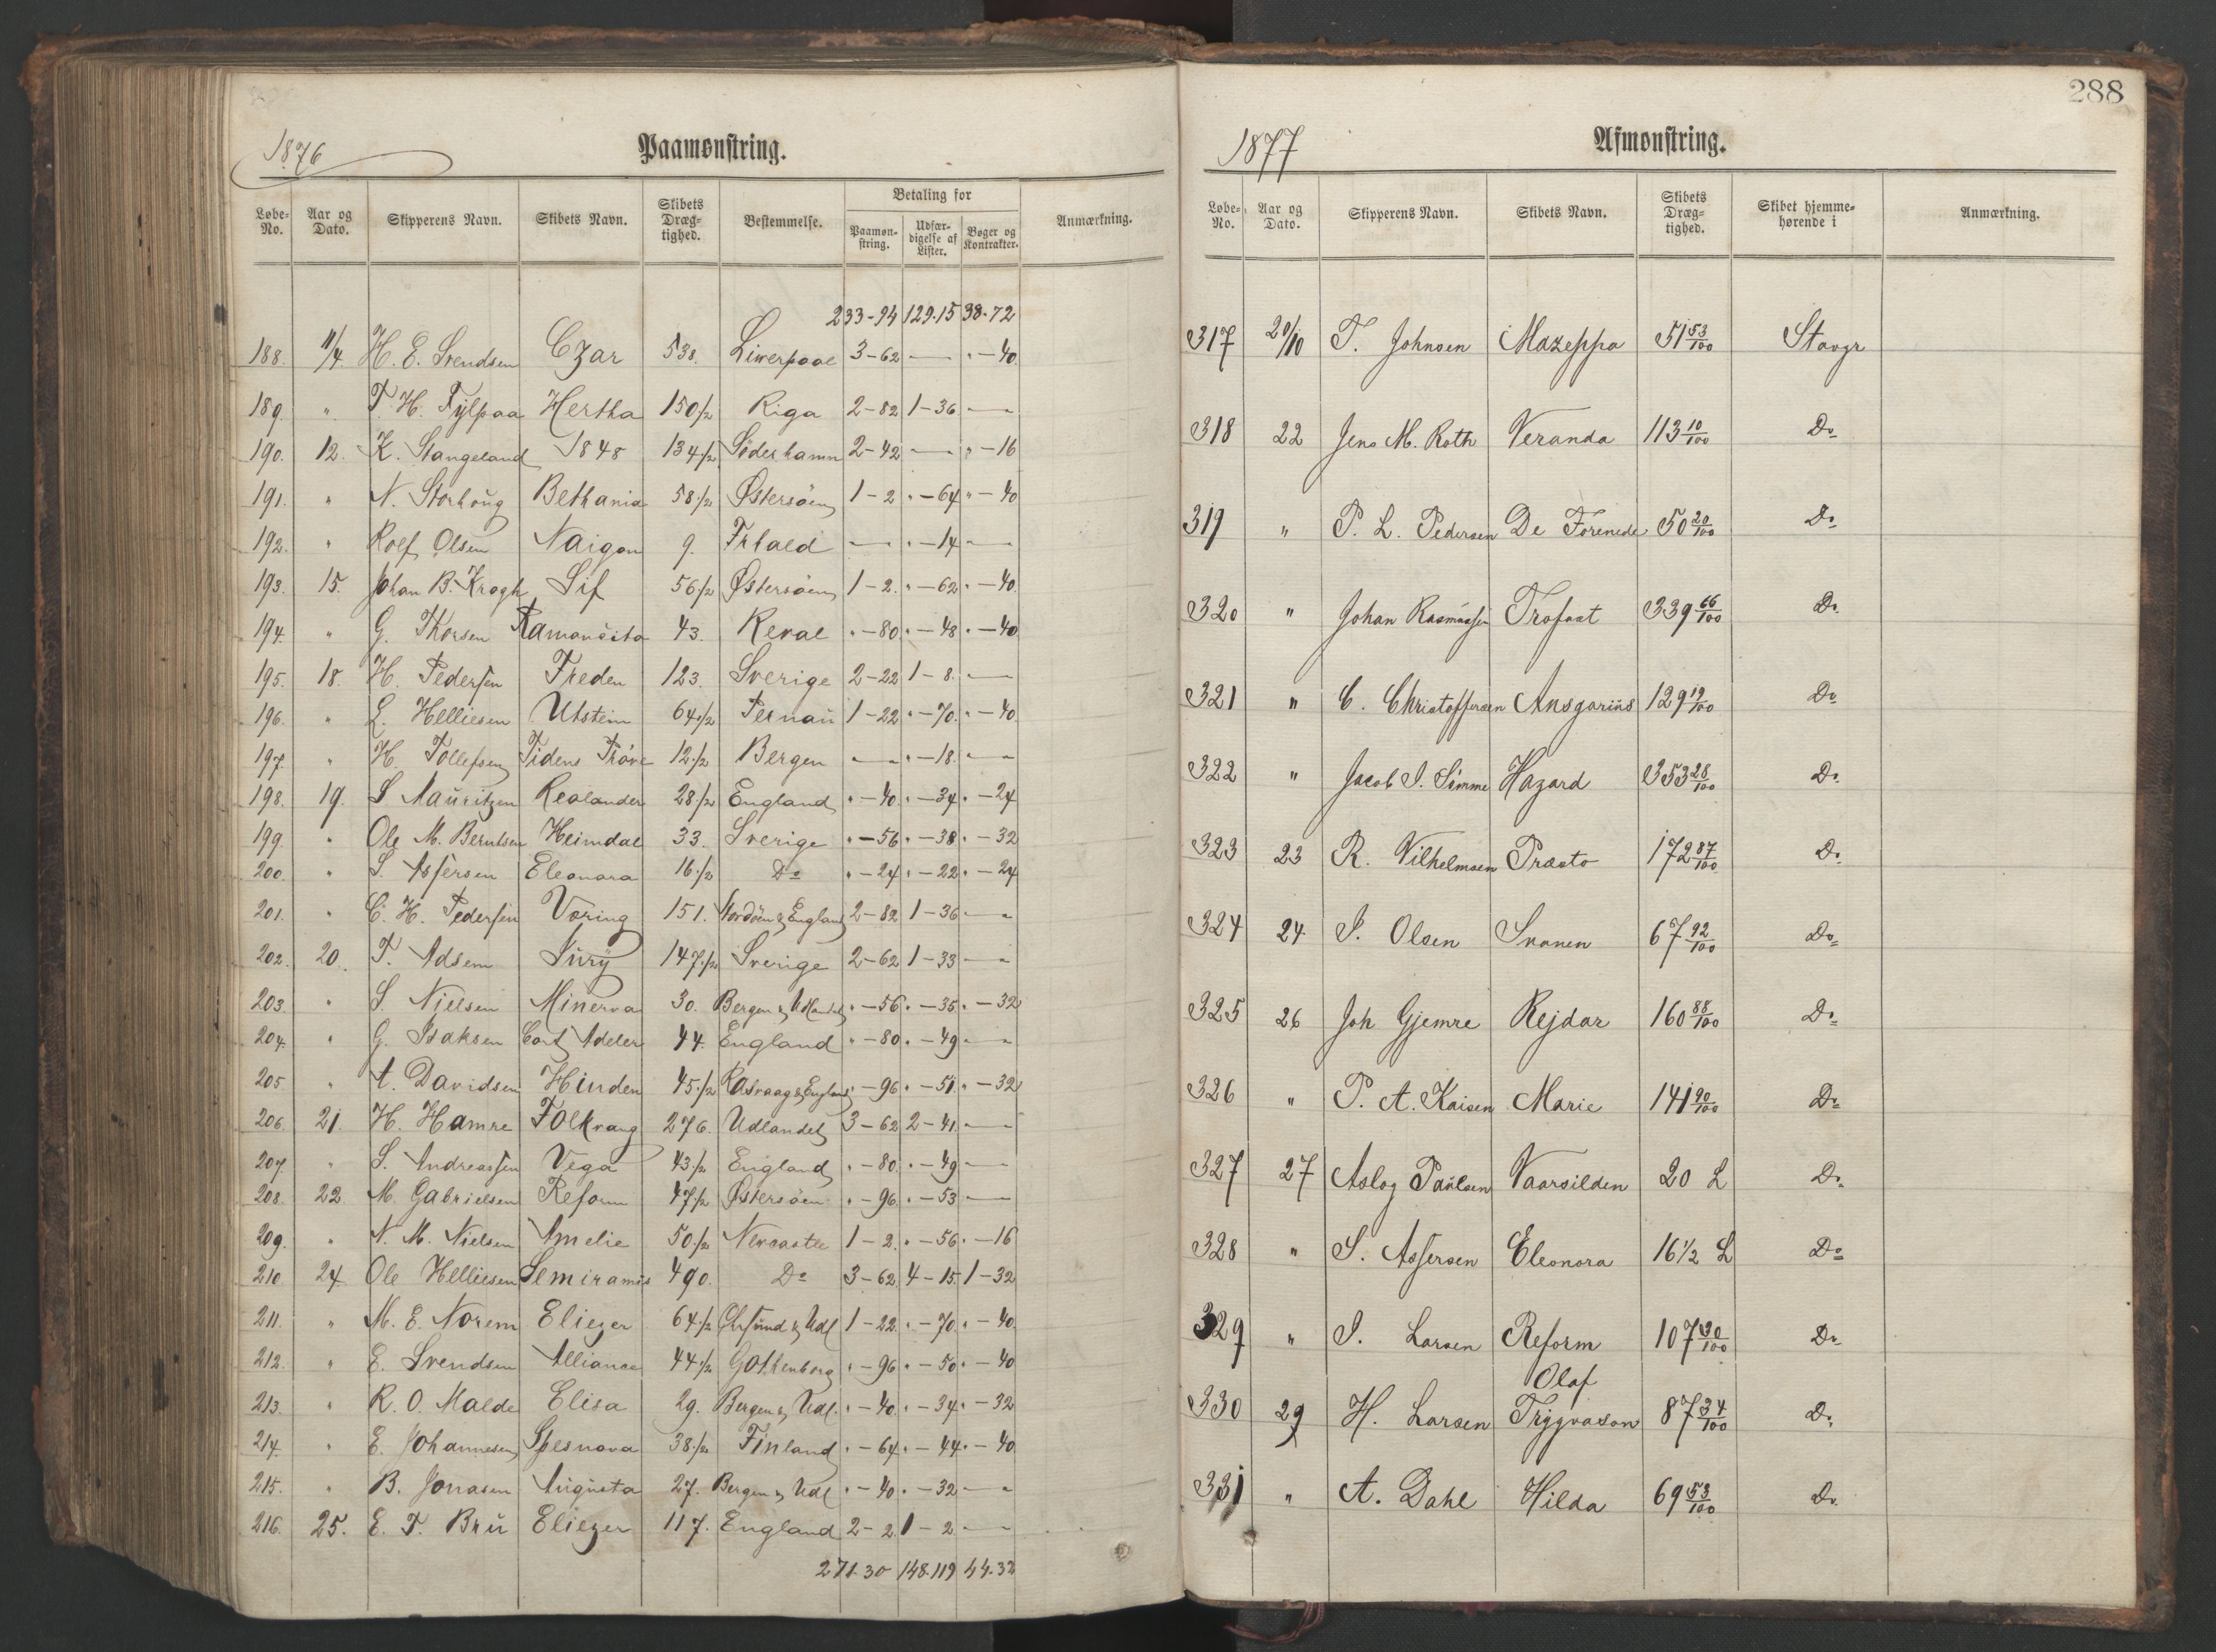 1876
Paamønstring.
Løbe-No. Aar og Dato. Skipperens Navn. Skibets Navn. Skibets Dræg-tighed. Bestemmelse. Betaling for Paamøn-string. Udfær-digelse af Lister. Bøger og Kontrakter. Anmærkning.
233-94 129.15 38-72
188. 11/4. H. E. Svendsen Czar 538. Liverpool 3-62 — " -40.
189. " T. H. Tylpaa Hertha 150/2 Riga 2-82 1-36 —
190. 12. K. Stangeland 1848 134/2 Söderhamn 2-42 — " -16
191. " N. Storhoug Bethania 58/2 Østersöen 1-2 " -64 " -40
192. " Rolf Olsen Naigon 9. — " -14 —
193. 15. Johan B. Krogh Sif 56/2 Østersöen 1-2. " -62 " -40.
194. " G. Thorsen 43. Reval " -80. " -48 " -40
195. 18. H. Pedersen Freden 123. Sverige 2-22 1-8. —
196. " L. Helliesen Utstein 64/2 Pernau 1-22 " -70. " -40.
197. " H. Tollefsen Tidens Pröve 12/2 Bergen — " -18. —
198. 19. S Mauritzen Realanden 28/2 England " -40. " -34 " -24
199. " Ole M. Berntsen Heimdal 33. Sverige " -56 " -38 " -32
200. " S. Assersen Eleonora 16/2 Do " -24 " -22 " -24
201. " C. H. Pedersen Væring 151. Nordöen & England 2-82 1-36 —
202. 20. T. Adsem Sury 147/2 Sverige 2-62 1-33 —
203. " S. Nielsen Minerva 30. Bergen & Udlandet " -56 " -35 " -32
204. " G. Isaksen Cort Adeler 44. England " -80 " -49 —
205. " A. Davidsen Hinden 45/2 & England " -96 " -51. " -32
206. 21. H. Hamre Folkvang 276. Udlandet 3-62 2-41. —
207. " S. Andreassen Vega 43/2 England " -80. " -49 —
208. 22 M. Gabrielsen Reform 47/2 Østersöen " -96. " -53 —
209. " N. M. Nielsen Amelie 50/2 Newcastle 1-2. " -56 " -16
210 24 Ole Helliesen Semiramis 490. Do 3-62 4-15. 1-32
211. " M. E. Norem Eliezer 64/2 Chrsund & Udl 1-22. " -70. " -40.
212. " E. Svendsen Alliance 44/2 Gothenborg " -96 " -50 " -40
213. " R. O. Malde Elisa 29. Bergen & Udl. " -40. " -34 " -32
214. " E. Johannesen Spesnova 38/2 Finland " -64 " -44. " -40
215. " B. Jonasen Augusta 27. Bergen & Udl " -40. " -32 —
216. 25. E. T. Bru Eliezer 117. England 2-2. 1-2. —
271.30 148.119 44.32
288
1877
Afmønstring.
Løbe-No. Aar og Dato. Skipperens Navn. Skibets Navn. Skibets Dræg-tighed. Skibet hjemme-hørende i Anmærkning.
317 20/10 T. Johnsen Mazeppa 51 53/100 Stavgr
318 22 Jens M. Roth Veranda 113 10/100 Do
319 " P. L. Pedersen De Forenede 50 20/100 Do
320 " Johan Rasmussen Trofast 339 66/100 Do
321 " C. Christoffersen Ansgarius 129 19/100 Do
322 " Jacob S. Sömme Hazard 353 28/100 Do
323 23 R. Vilhelmsen Præsto 172 87/100 Do
324 24 S. Olsen Svanen 67 92/100 Do
325 26 Joh Gjemre Rejdar 160 88/100 Do
326 " P. A. Kaisen Marie 141 90/100 Do
327 27 Aslag Paulsen Vaarsilden 20 L Do
328 " S. Assersen Eleonora 16 1/2 L Do
329 " S. Larsen Reform 107 30/100 Do
330 29 H. Larsen Olaf Trygvason 87 34/100 Do
331 " A. Dahl Hilda 69 53/100 Do